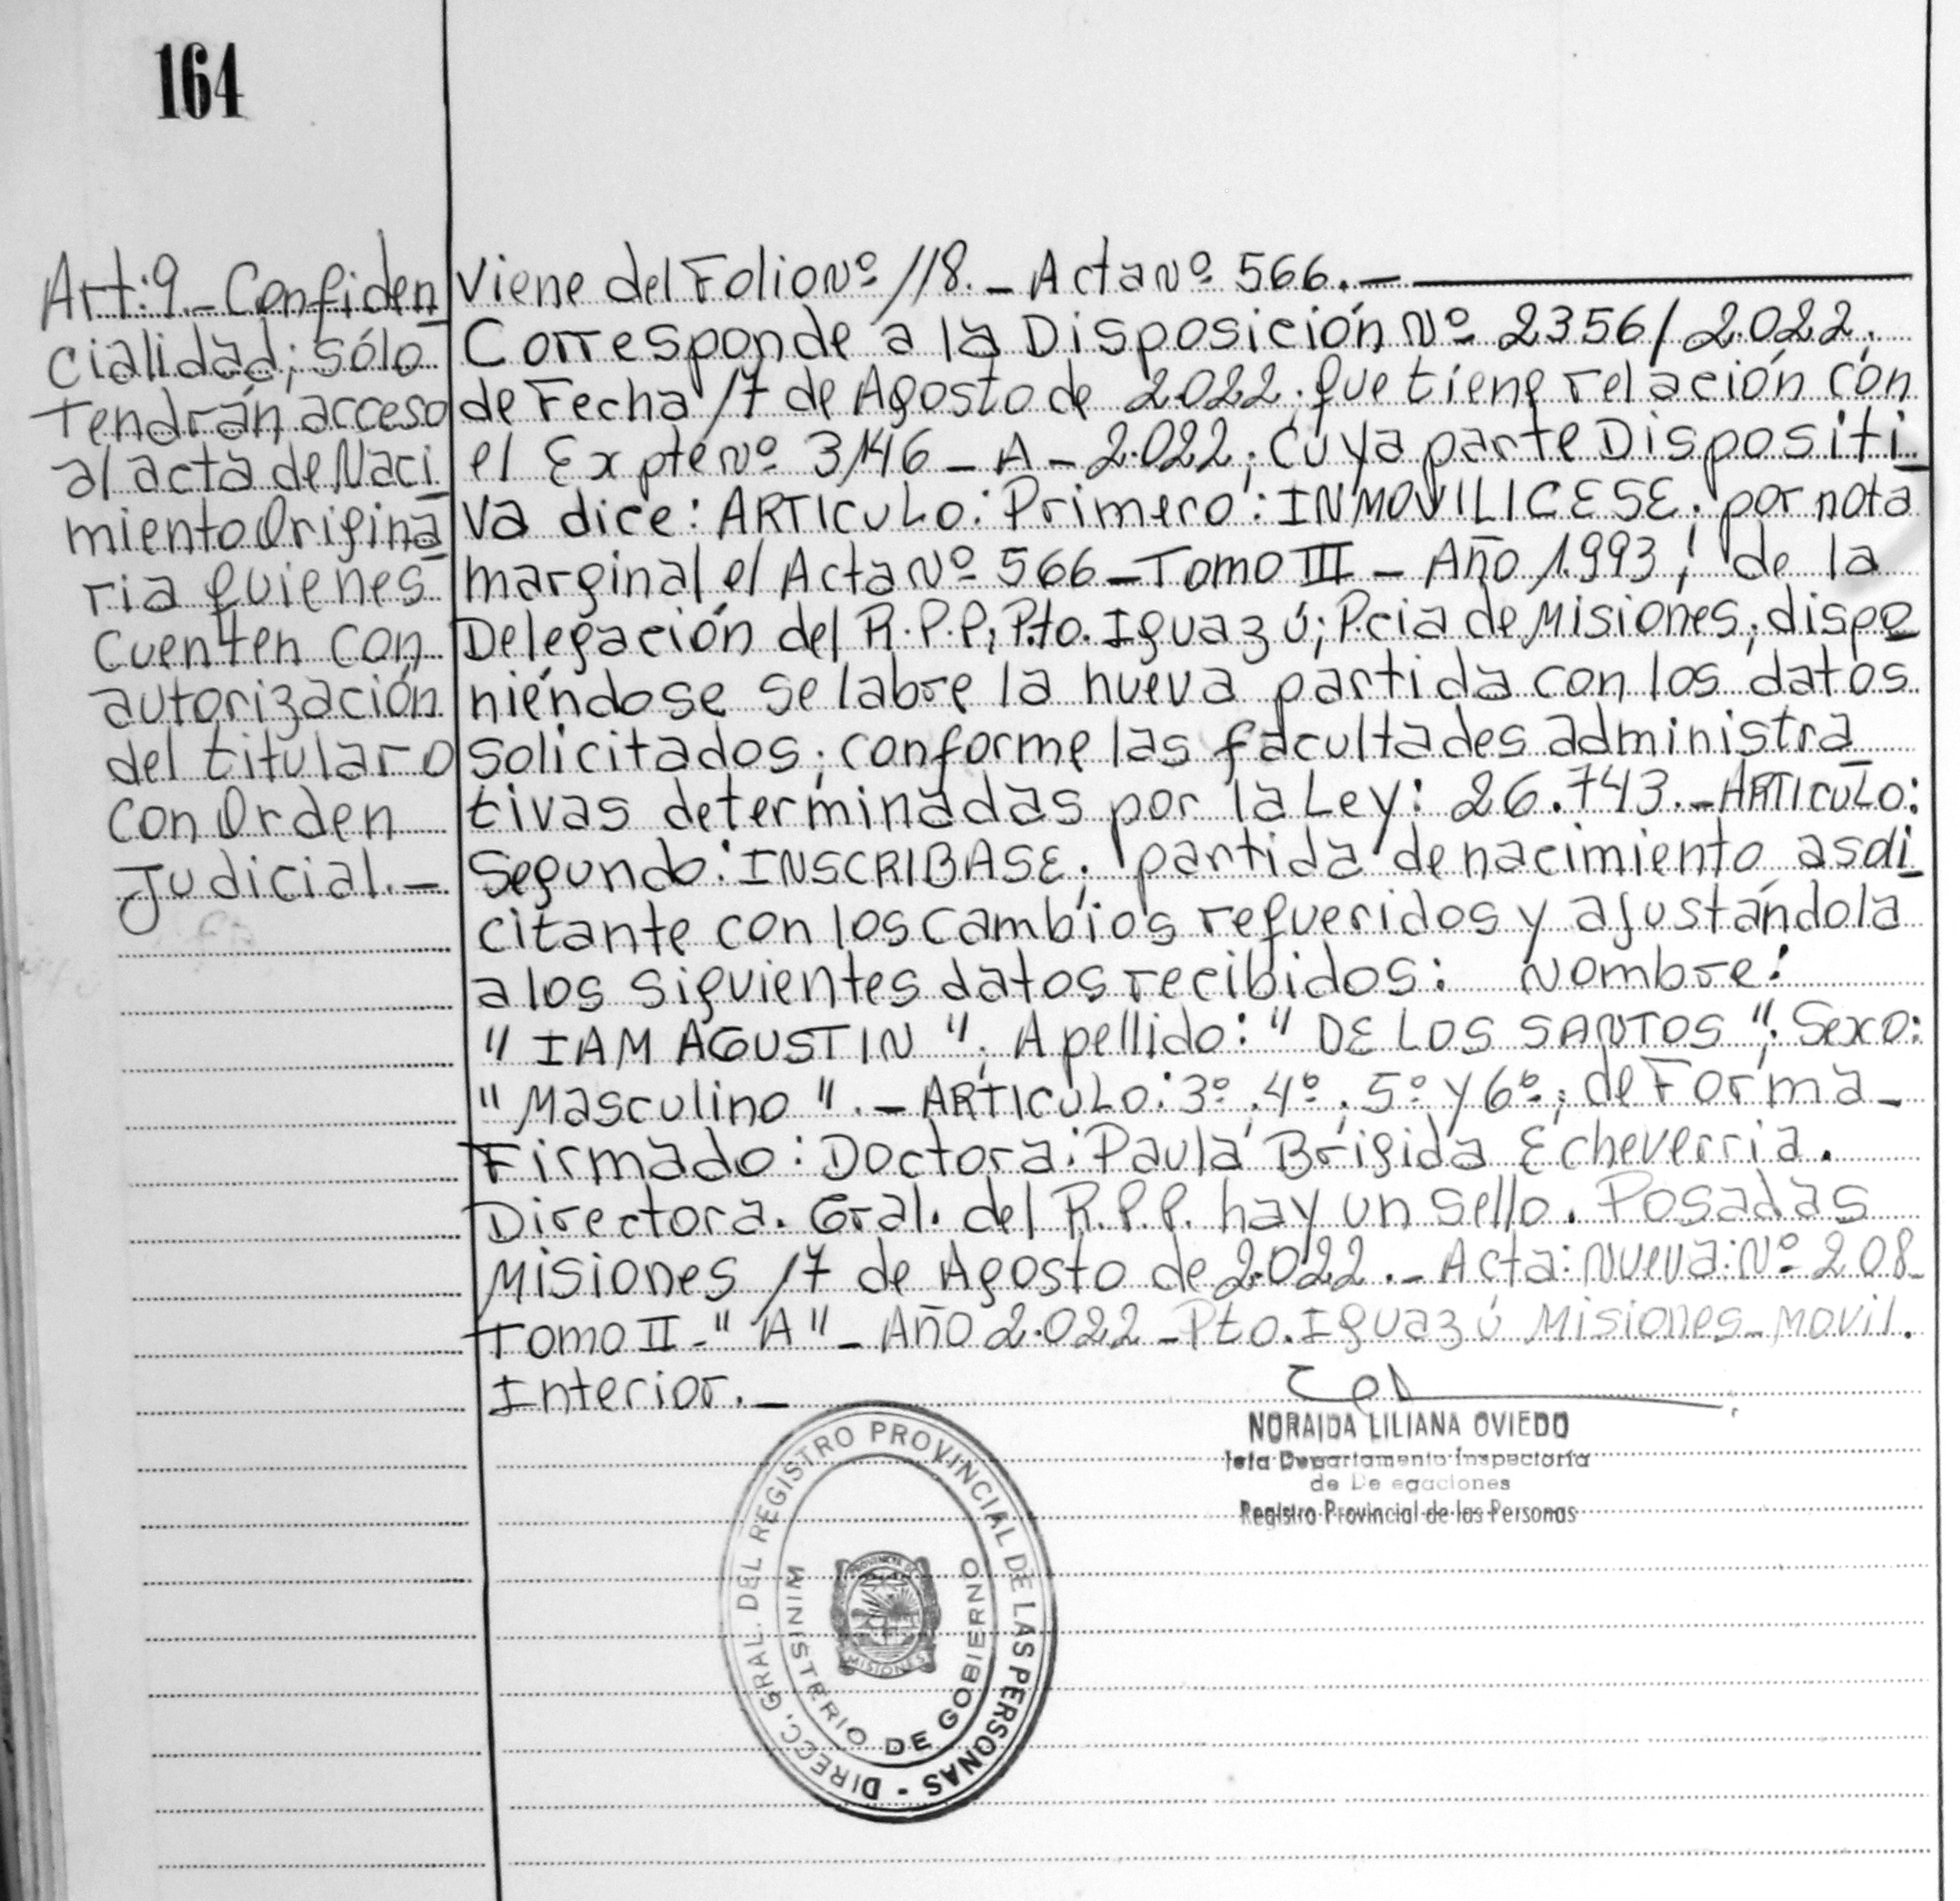 164
Art: 9._ Confiden
cialidad; sólo
Tendrán acceso
al acta de Naci
miento Origina
ria quienes
Cuenten con
autorización
del titular o
con Orden
Judicial._
Viene del Folio Nº 118._ Acta Nº 566._
Corresponde a la Disposición Nº 2356/2.022.
de Fecha 17 de Agosto de 2.022. que tiene relación con
el Expte Nº 3146_A_2.022; Cuya parte Dispositi
va dice: ARTICULO: Primero: INMOVILICESE; por nota
marginal el Acta Nº 566_Tomo III_ Año 1.993; de la
Delegación del R.P.P; Pto. Iguazú; Pcia de Misiones; dispo
niéndose se labre la nueva partida con los datos
solicitados; conforme las facultades administra
tivas determinadas por la Ley: 26.743._ARTICULO:
Segundo: INSCRIBASE; partida de nacimiento a soli
citante con los cambios requeridos y ajustándola
a los siguientes datos recibidos: Nombre:
" IAM AGUSTIN "; Apellido: " DE LOS SANTOS "; Sexo:
" Masculino "._ ARTICULO: 3º, 4º, 5º y 6º; de Forma_
Firmado: Doctora: Paula Brigida Echeverria.
Directora. Gral. del R.P.P. hay un sello. Posadas
Misiones 17 de Agosto de 2.022._ Acta: Nueva: Nº 208_
Tomo II_"A"_ Año 2.022_Pto. Iguazú Misiones_movil.
Interior._
NORAIDA LILIANA OVIEDO
Jefa Departamento Inspectoría
de De egaciones
Registro Provincial de las Personas
DIRECC. GRAL. DEL REGISTRO PROVINCIAL DE LAS PERSONAS -
MINISTERIO DE GOBIERNO
PROVINCIA DE
MISIONES